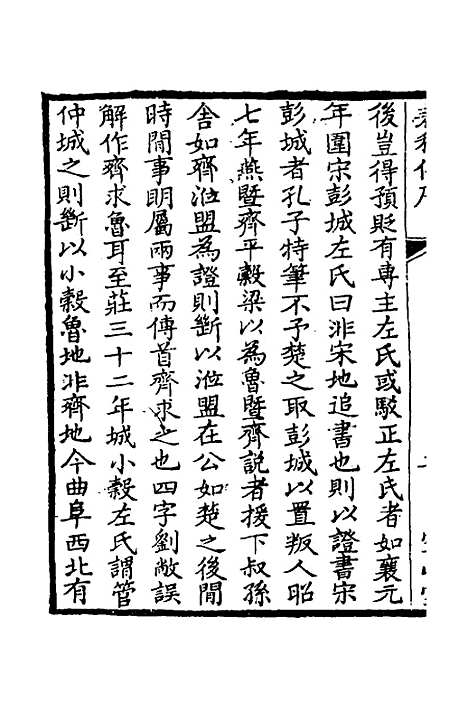 後豈得預貶有専主左氏或駮正左氏者如襄元
年圍宋彭城左氏曰非宋地追書也則以證書宋
彭城者孔子特筆不予楚之取彭城以置叛人昭
七年燕暨齊平糓梁以為魯暨齊説者援下叔孫
舍如齊涖盟為證則斷以涖盟在公如楚之後閒
時閒事明屬兩事而傳首齊求之也四字劉敞誤
解作齊求魯耳至莊三十二年城小糓左氏謂管
仲城之則斷以小糓魯地非齊地今曲阜西北有